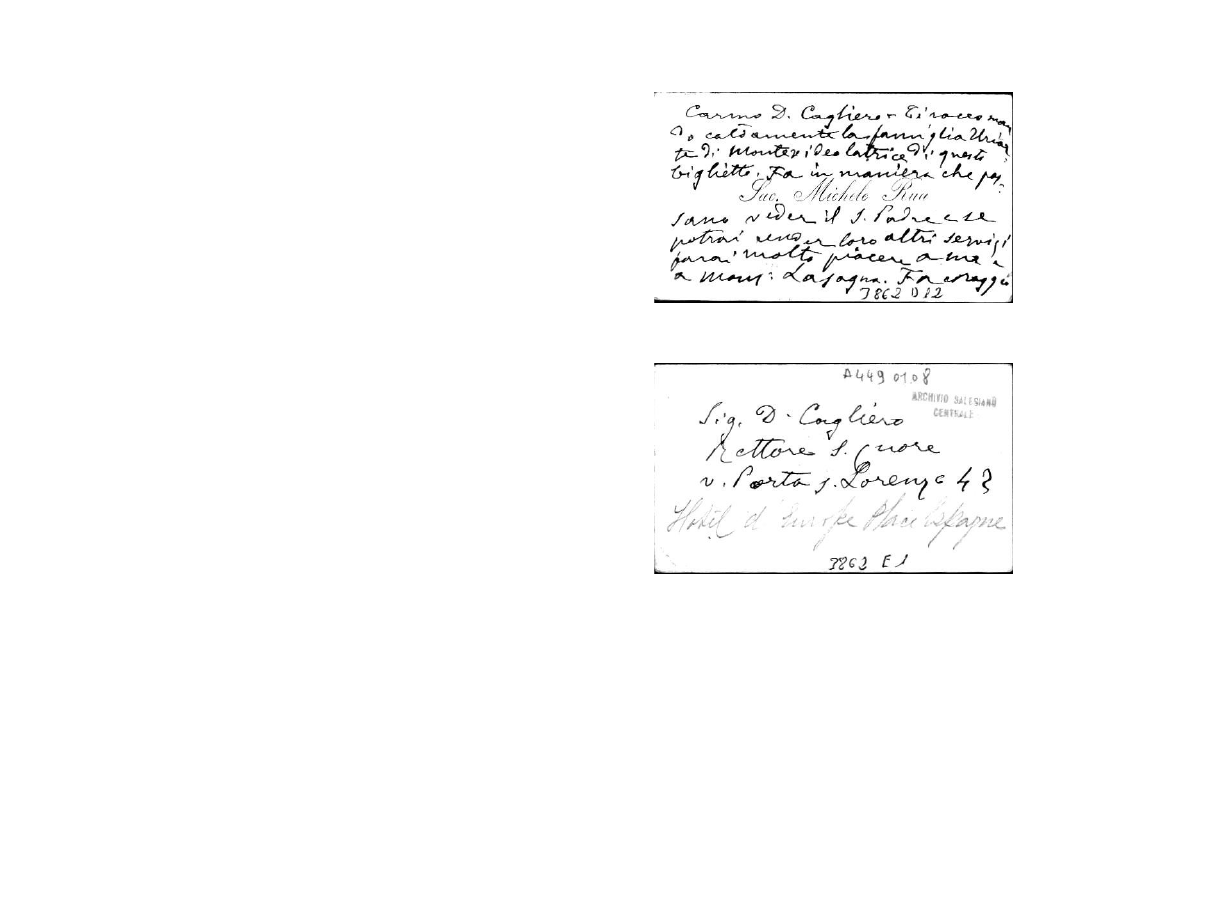 Carmo D. Cagliero - Ti raccoman
do caldamente la famiglia Uriar
te di Montevideo latrice di questo
biglietto. Fa in maniera che pos-
Sac. Michele Rua
sano veder il S. Padre e se
potrai render loro altri servigi
farai molto piacere a me e
a Mons: Lasagna. Fa coraggio
3862 D12
A449 01.08
ARCHIVIO SALESIANO
CENTRALE
Sig. D. Cagliero
Rettore S. Cuore
v. Porta S. Lorenzo 42
Hotel d'Europe Place Espagne
3862 E1